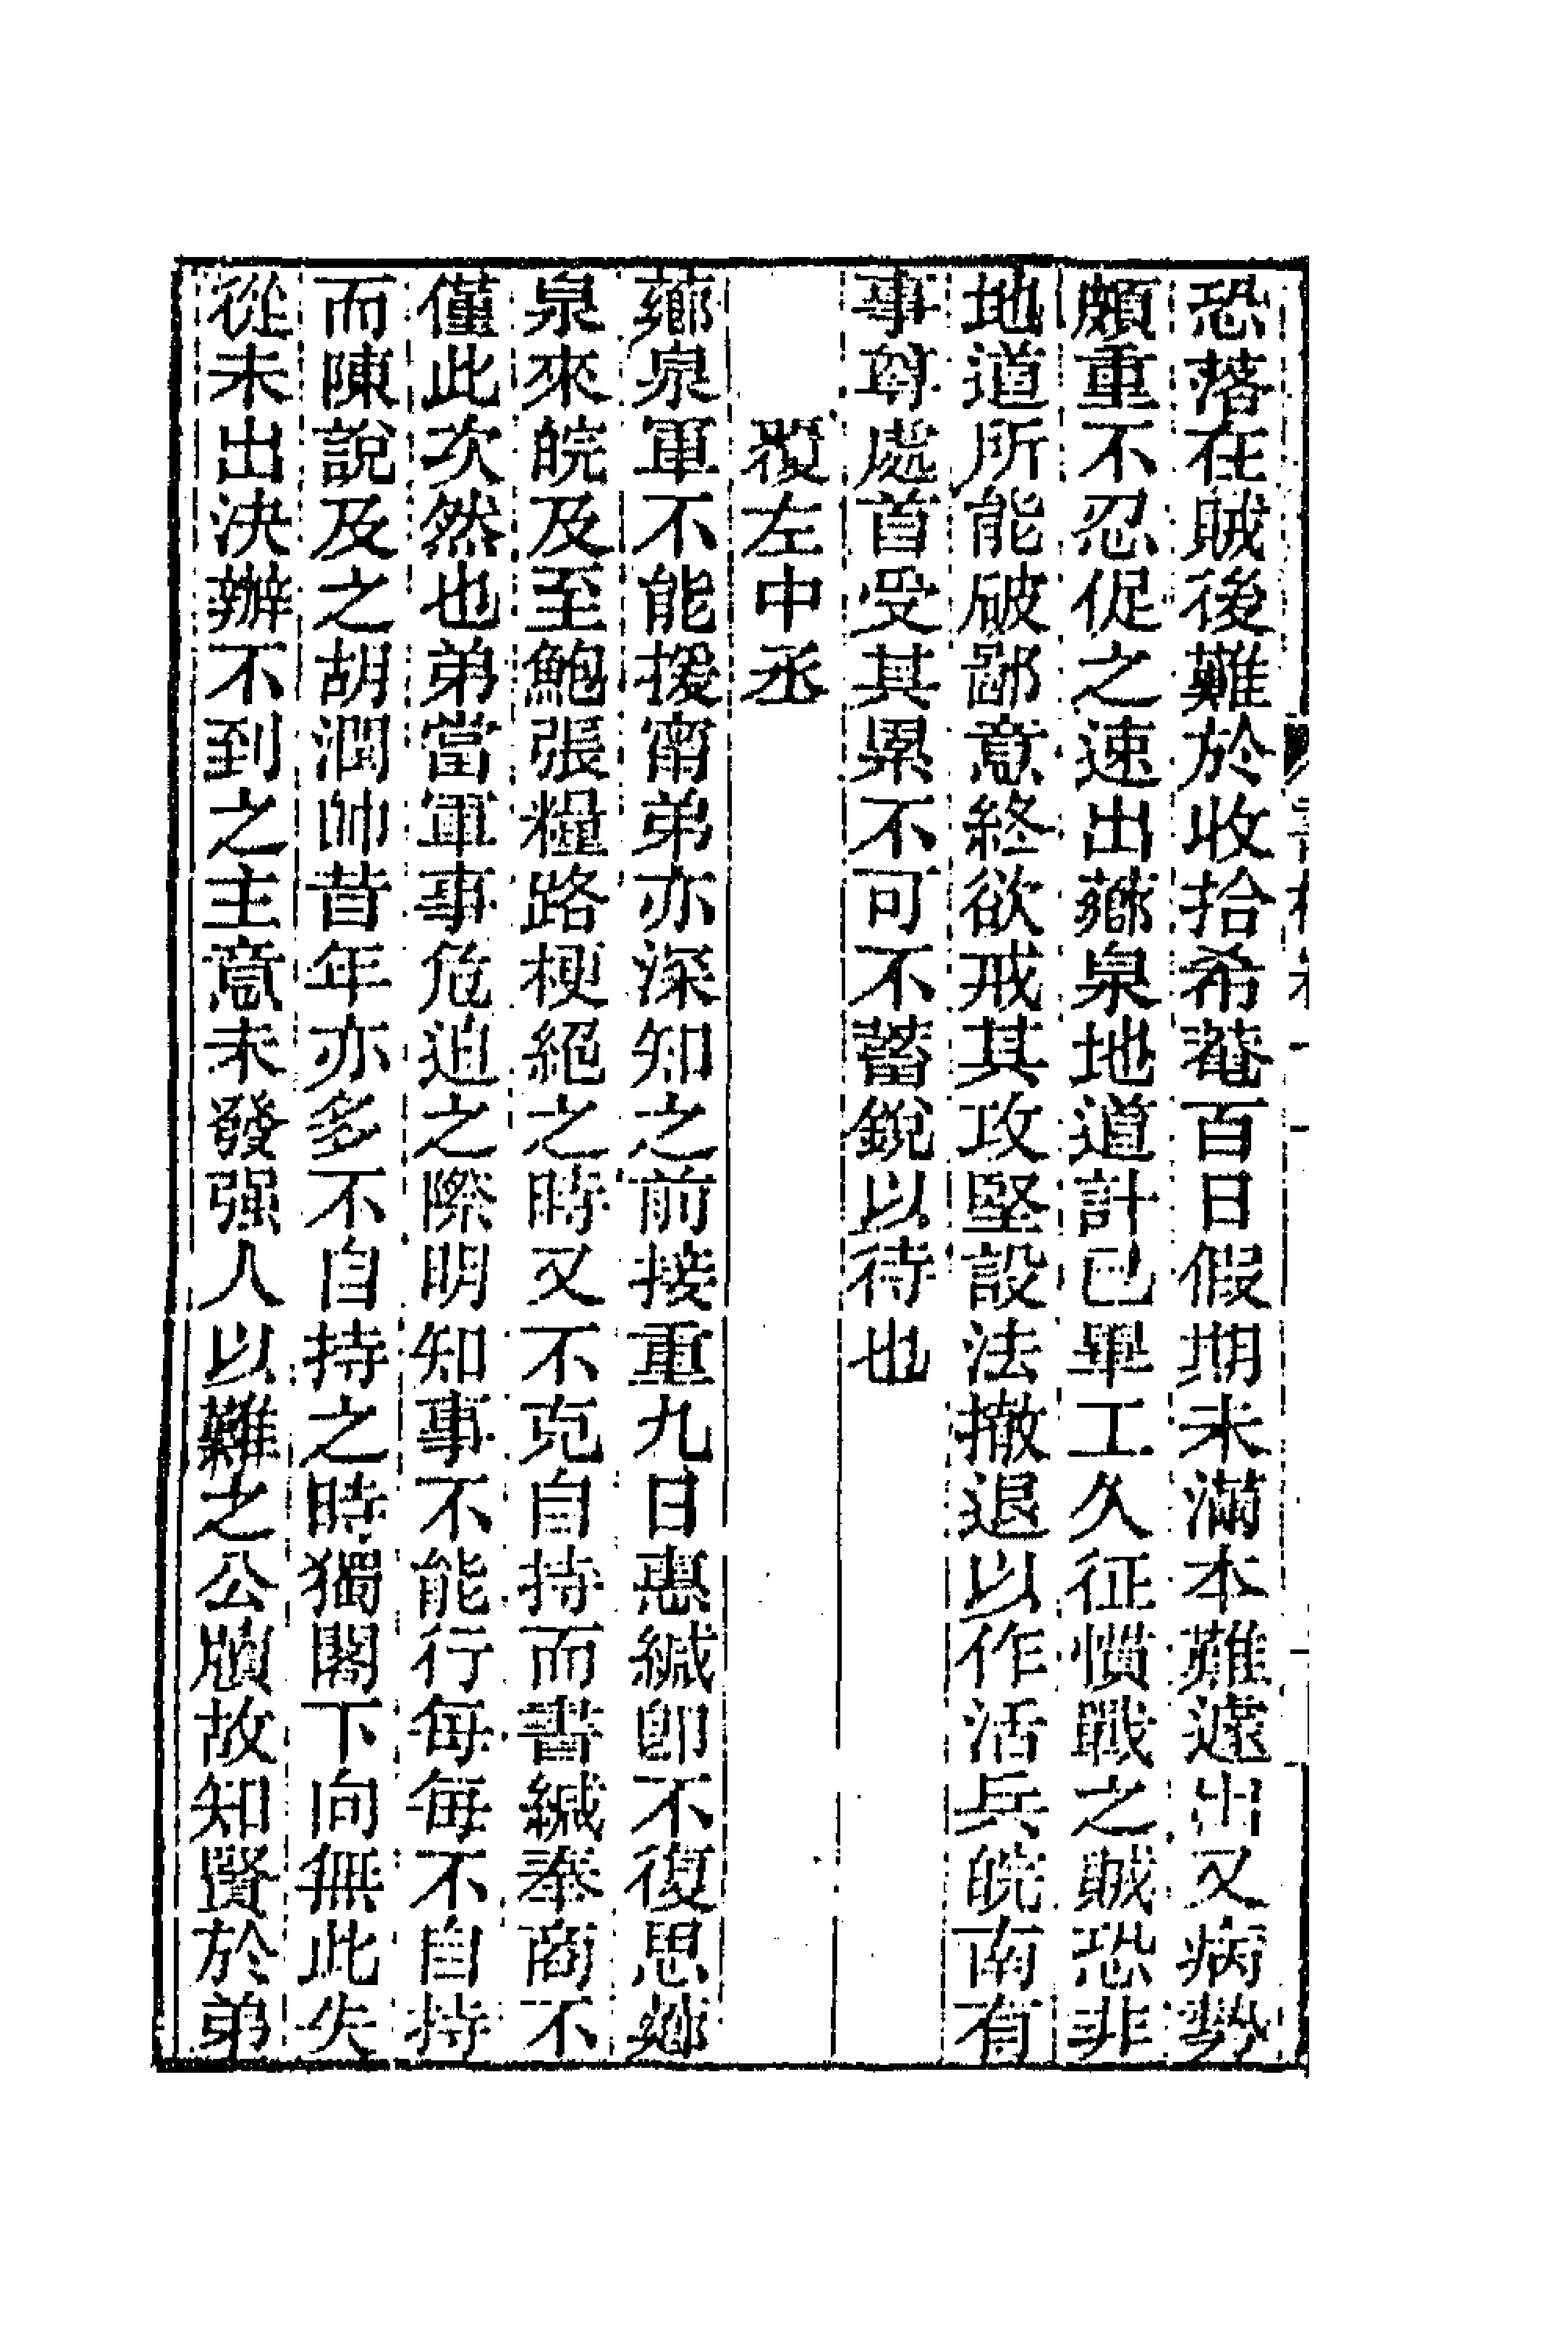 恐落在賊後難於收拾希菴百日假期未滿本難遽出又病勢
頗重不忍促之速出薌泉地道計已畢工久征慣戰之賊恐非
地道所能破鄙意終欲戒其攻堅設法撤退以作活兵皖南有
事尊處首受其累不可不蓄銳以待也
覆左中丞
薌泉軍不能援甯弟亦深知之前接重九日惠緘卽不復思薌
泉來皖及至鮑張糧路梗絕之時又不克自持而書緘奉商不
僅此次然也弟當軍事危迫之際明知事不能行每每不自持
而陳說及之胡潤帥昔年亦多不自持之時獨閣下向無此失
從未出決辦不到之主意未發强人以難之公牘故知賢於弟